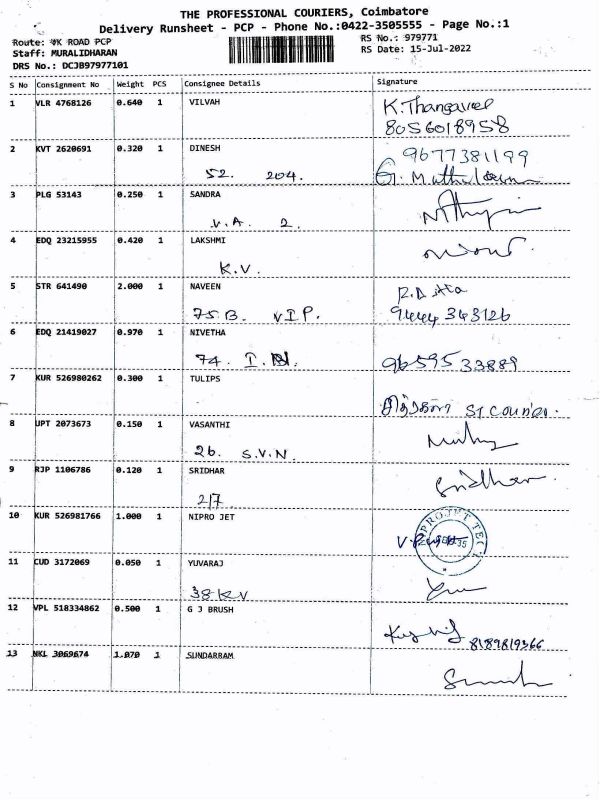 THE PROFESSIONAL COURIERS, Coimbatore
Delivery Runsheet - PCP - Phone No.:0422-3505555 - Page No.:1
Route: VK ROAD PCP
Staff: MURALIDHARAN
DRS No.: DCJB97977101
RS No.: 979771
RS Date: 15-Jul-2022
S No Consignment No Weight PCS Consignee Details Signature
1 VLR 4768126 0.640 1 VILVAH K.Thangavel
8056018958
2 KVT 2620691 0.320 1 DINESH 9677381199
52. 204.
3 PLG 53143 0.250 1 SANDRA
V.A. 2.
4 EDQ 23215955 0.420 1 LAKSHMI
K.V.
5 STR 641490 2.000 1 NAVEEN
75B. VIP. 9444 343126
6 EDQ 21419027 0.970 1 NIVETHA
74. 96595 33889
7 KUR 526980262 0.300 1 TULIPS
8 UPT 2073673 0.150 1 VASANTHI
26. S.V.N.
9 RJP 1106786 0.120 1 SRIDHAR Sridhar
217
10 KUR 526981766 1.000 1 NIPRO JET
11 CUD 3172069 0.050 1 YUVARAJ
38 KV
12 VPL 518334862 0.500 1 G J BRUSH
8189819366
13 NKL 3069674 1.070 1 SUNDARRAM